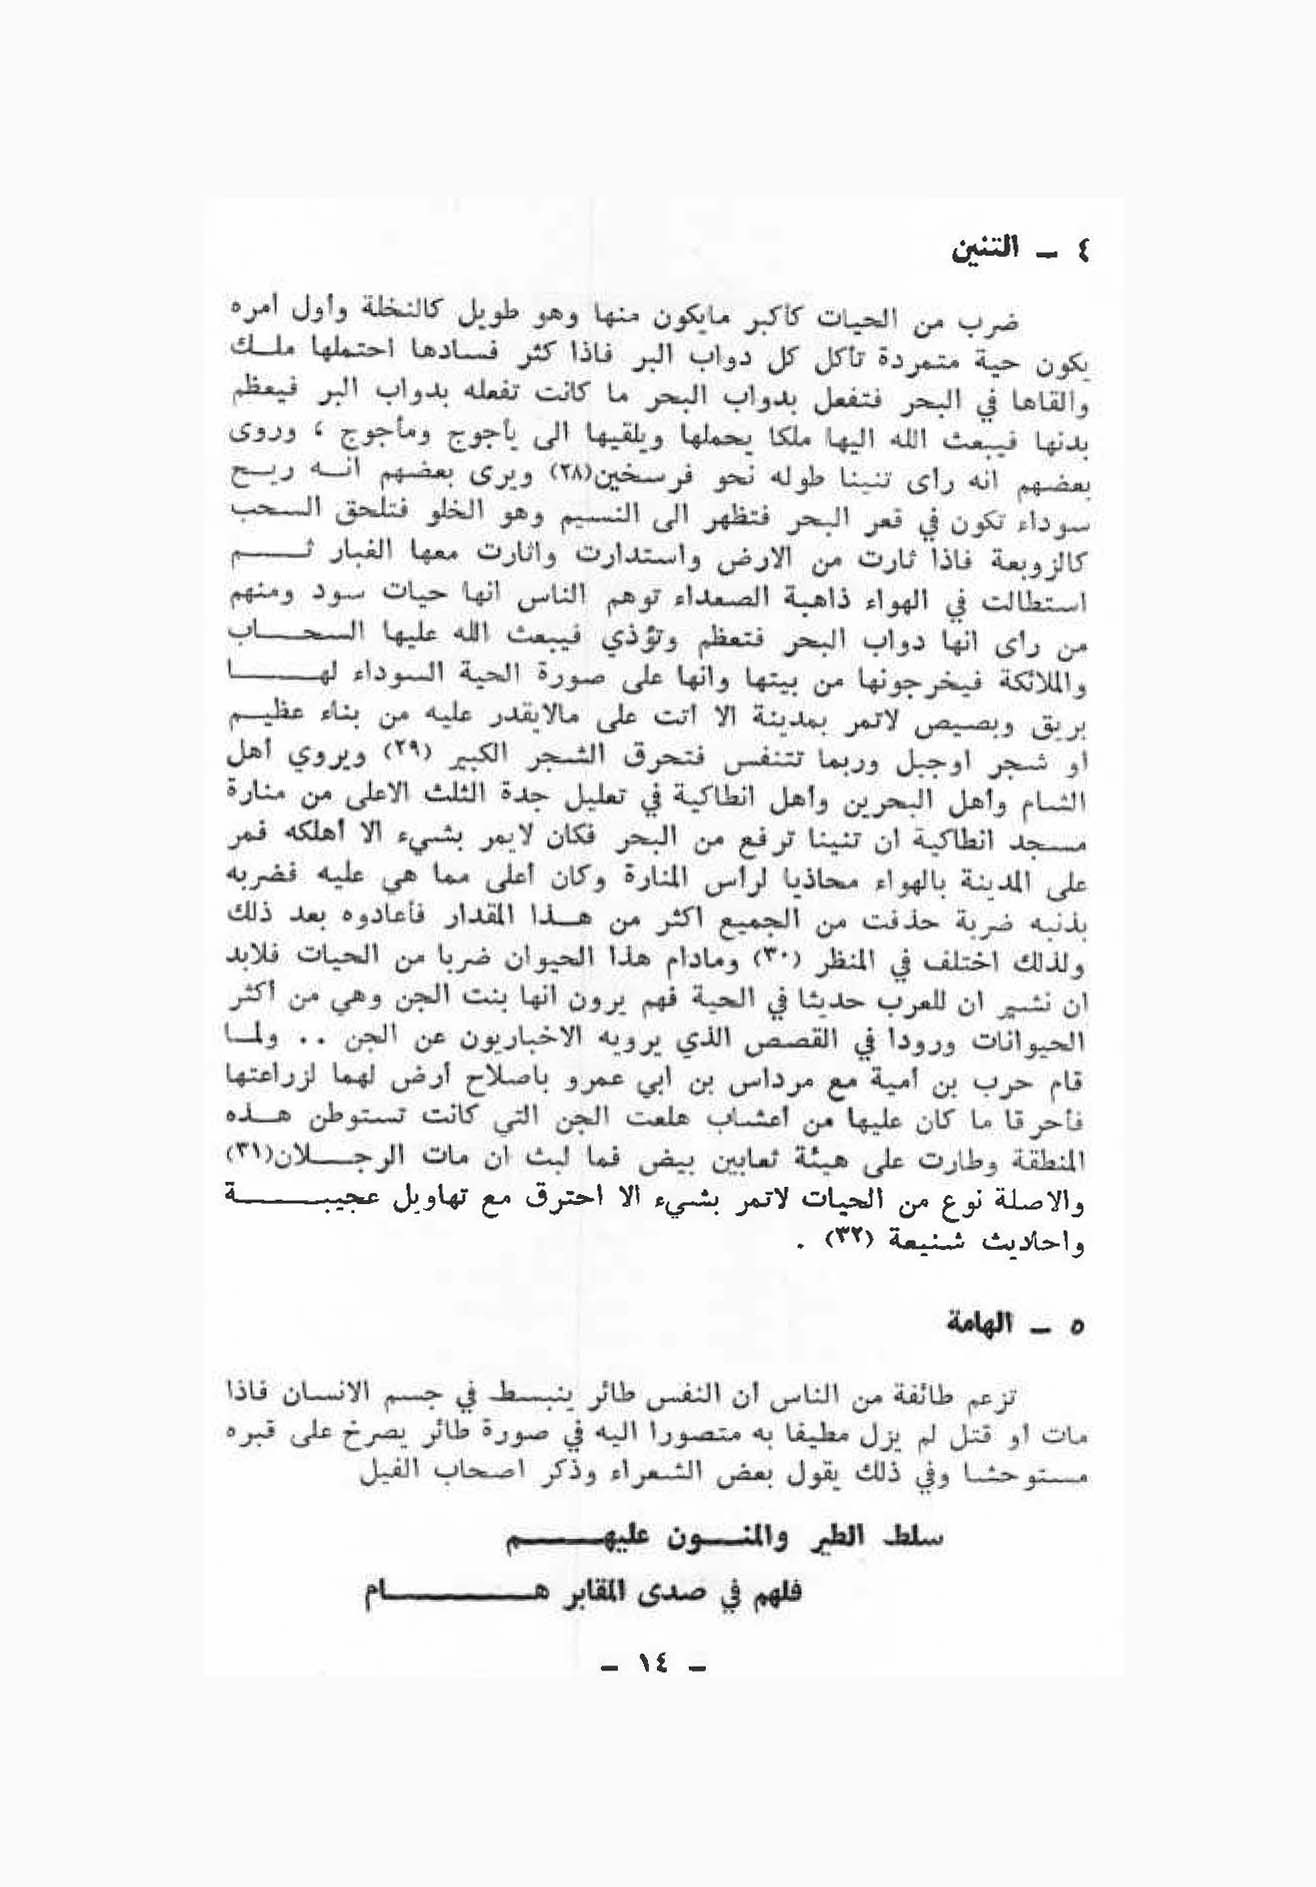 ٤ ـ التنين
ضرب من الحيات كأكبر مايكون منها وهو طويل كالنخلة وأول أمره
يكون حية متمردة تأكل كل دواب البر فاذا كثر فسادها احتملها ملك
والقاها في البحر فتفعل بدواب البحر ما كانت تفعله بدواب البر فيعظم
بدنها فيبعث الله اليها ملكا يحملها ويلقيها الى يأجوج ومأجوج ، وروى
بعضهم انه رأى تنينا طوله نحو فرسخين(٢٨) ويرى بعضهم انه ريح
سوداء تكون في قعر البحر فتظهر الى النسيم وهو الخلو فتلحق السحب
كالزوبعة فاذا ثارت من الارض واستدارت واثارت معها الغبار ثم
استطالت في الهواء ذاهبة الصعداء توهم الناس انها حيات سود ومنهم
من رأى انها دواب البحر فتعظم وتؤذي فيبعث الله عليها السحاب
والملائكة فيخرجونها من بيتها وانها على صورة الحية السوداء لها
بريق وبصيص لاتمر بمدينة الا أتت على مالايقدر عليه من بناء عظيم
أو شجر اوجبل وربما تتنفس فتحرق الشجر الكبير (٢٩) ويروي أهل
الشام وأهل البحرين وأهل انطاكية في تعليل جدة الثلث الاعلى من منارة
مسجد انطاكية ان تنينا ترفع من البحر فكان لايمر بشيء الا أهلكه فمر
على المدينة بالهواء محاذيا لرأس المنارة وكان أعلى مما هي عليه فضربه
بذنبه ضربة حذفت من الجميع اكثر من هذا المقدار فأعادوه بعد ذلك
ولذلك اختلف في المنظر (٣٠) ومادام هذا الحيوان ضربا من الحيات فلابد
ان نشير ان للعرب حديثا في الحية فهم يرون انها بنت الجن وهي من أكثر
الحيوانات ورودا في القصص الذي يرويه الاخباريون عن الجن .. ولما
قام حرب بن أمية مع مرداس بن ابي عمرو باصلاح أرض لهما لزراعتها
فأحرقا ما كان عليها من أعشاب هلعت الجن التي كانت تستوطن هذه
المنطقة وطارت على هيئة ثعابين بيض فما لبث ان مات الرجلان(٣١)
والاصلة نوع من الحيات لاتمر بشيء الا احترق مع تهاويل عجيبة
واحاديث شنيعة (٣٢) .
٥ ـ الهامة
تزعم طائفة من الناس أن النفس طائر ينبسط في جسم الانسان فاذا
مات أو قتل لم يزل مطيفا به متصورا اليه في صورة طائر يصرخ على قبره
مستوحشا وفي ذلك يقول بعض الشعراء وذكر اصحاب الفيل
سلط الطير والمنون عليهم
فلهم في صدى المقابر هام
ـ ١٤ ـ